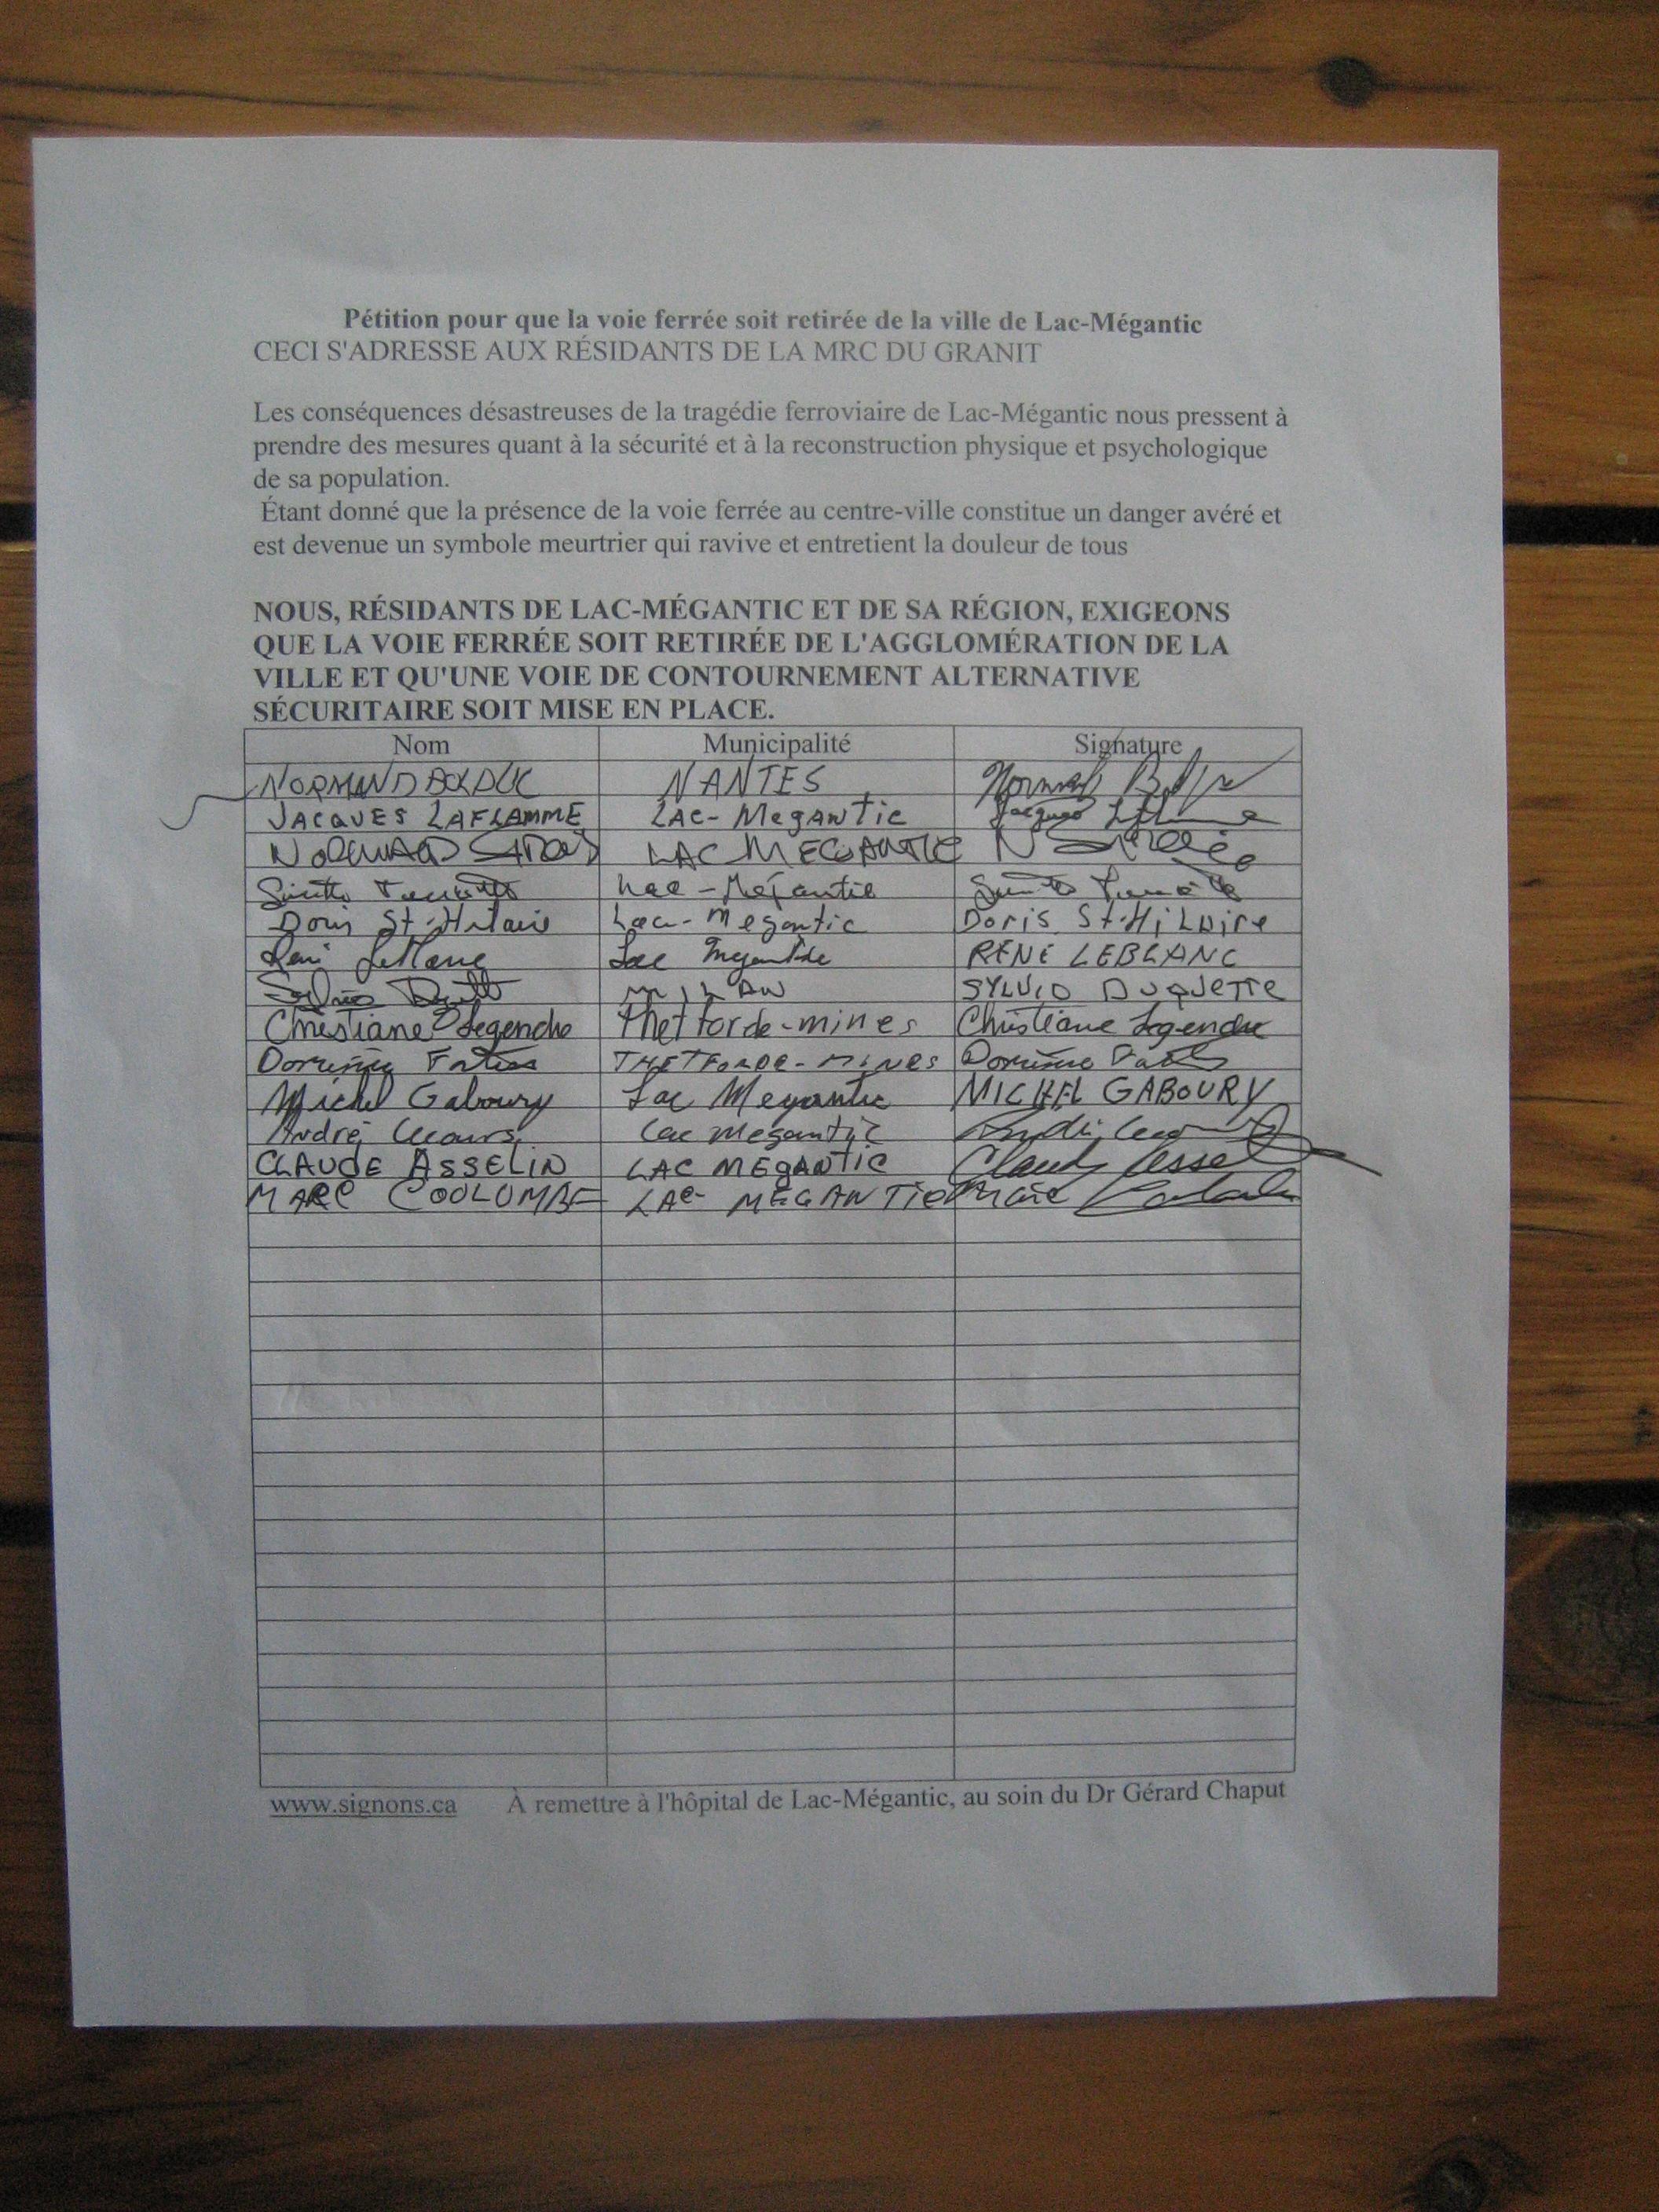 Pétition pour que la voie ferrée soit retirée de la ville de Lac-Mégantic
CECI S'ADRESSE AUX RÉSIDANTS DE LA MRC DU GRANIT
Les conséquences désastreuses de la tragédie ferroviaire de Lac-Mégantic nous pressent à
prendre des mesures quant à la sécurité et à la reconstruction physique et psychologique
de sa population.
Étant donné que la présence de la voie ferrée au centre-ville constitue un danger avéré et
est devenue un symbole meurtrier qui ravive et entretient la douleur de tous
NOUS, RÉSIDANTS DE LAC-MÉGANTIC ET DE SA RÉGION, EXIGEONS
QUE LA VOIE FERRÉE SOIT RETIRÉE DE L'AGGLOMÉRATION DE LA
VILLE ET QU'UNE VOIE DE CONTOURNEMENT ALTERNATIVE
SÉCURITAIRE SOIT MISE EN PLACE.
Nom Municipalité Signature
NORMAND BOLDUC NANTES Normand
JACQUES LAFLAMME LAC-MeganTic Jacques
LAC MEGANTIC N
Lac-Mégantic
Doris St-Hilaire Lac-Megantic Doris St-HiLaire
René LeBlanc Lac Megantic RENE LEBLANC
MILAN SYLVIO DUQUETTE
Christiane Legendre Thetforde-mines Christiane Legendre
THETFORDE-MINES
Michel Gaboury Lac Megantic MICHEL GABOURY
André Lac megantic André
CLAUDE ASSELIN LAC MEganTic Claude Assel
MARC COOLOMBE LAC-MEGANTIC Marc
www.signons.ca À remettre à l'hôpital de Lac-Mégantic, au soin du Dr Gérard Chaput